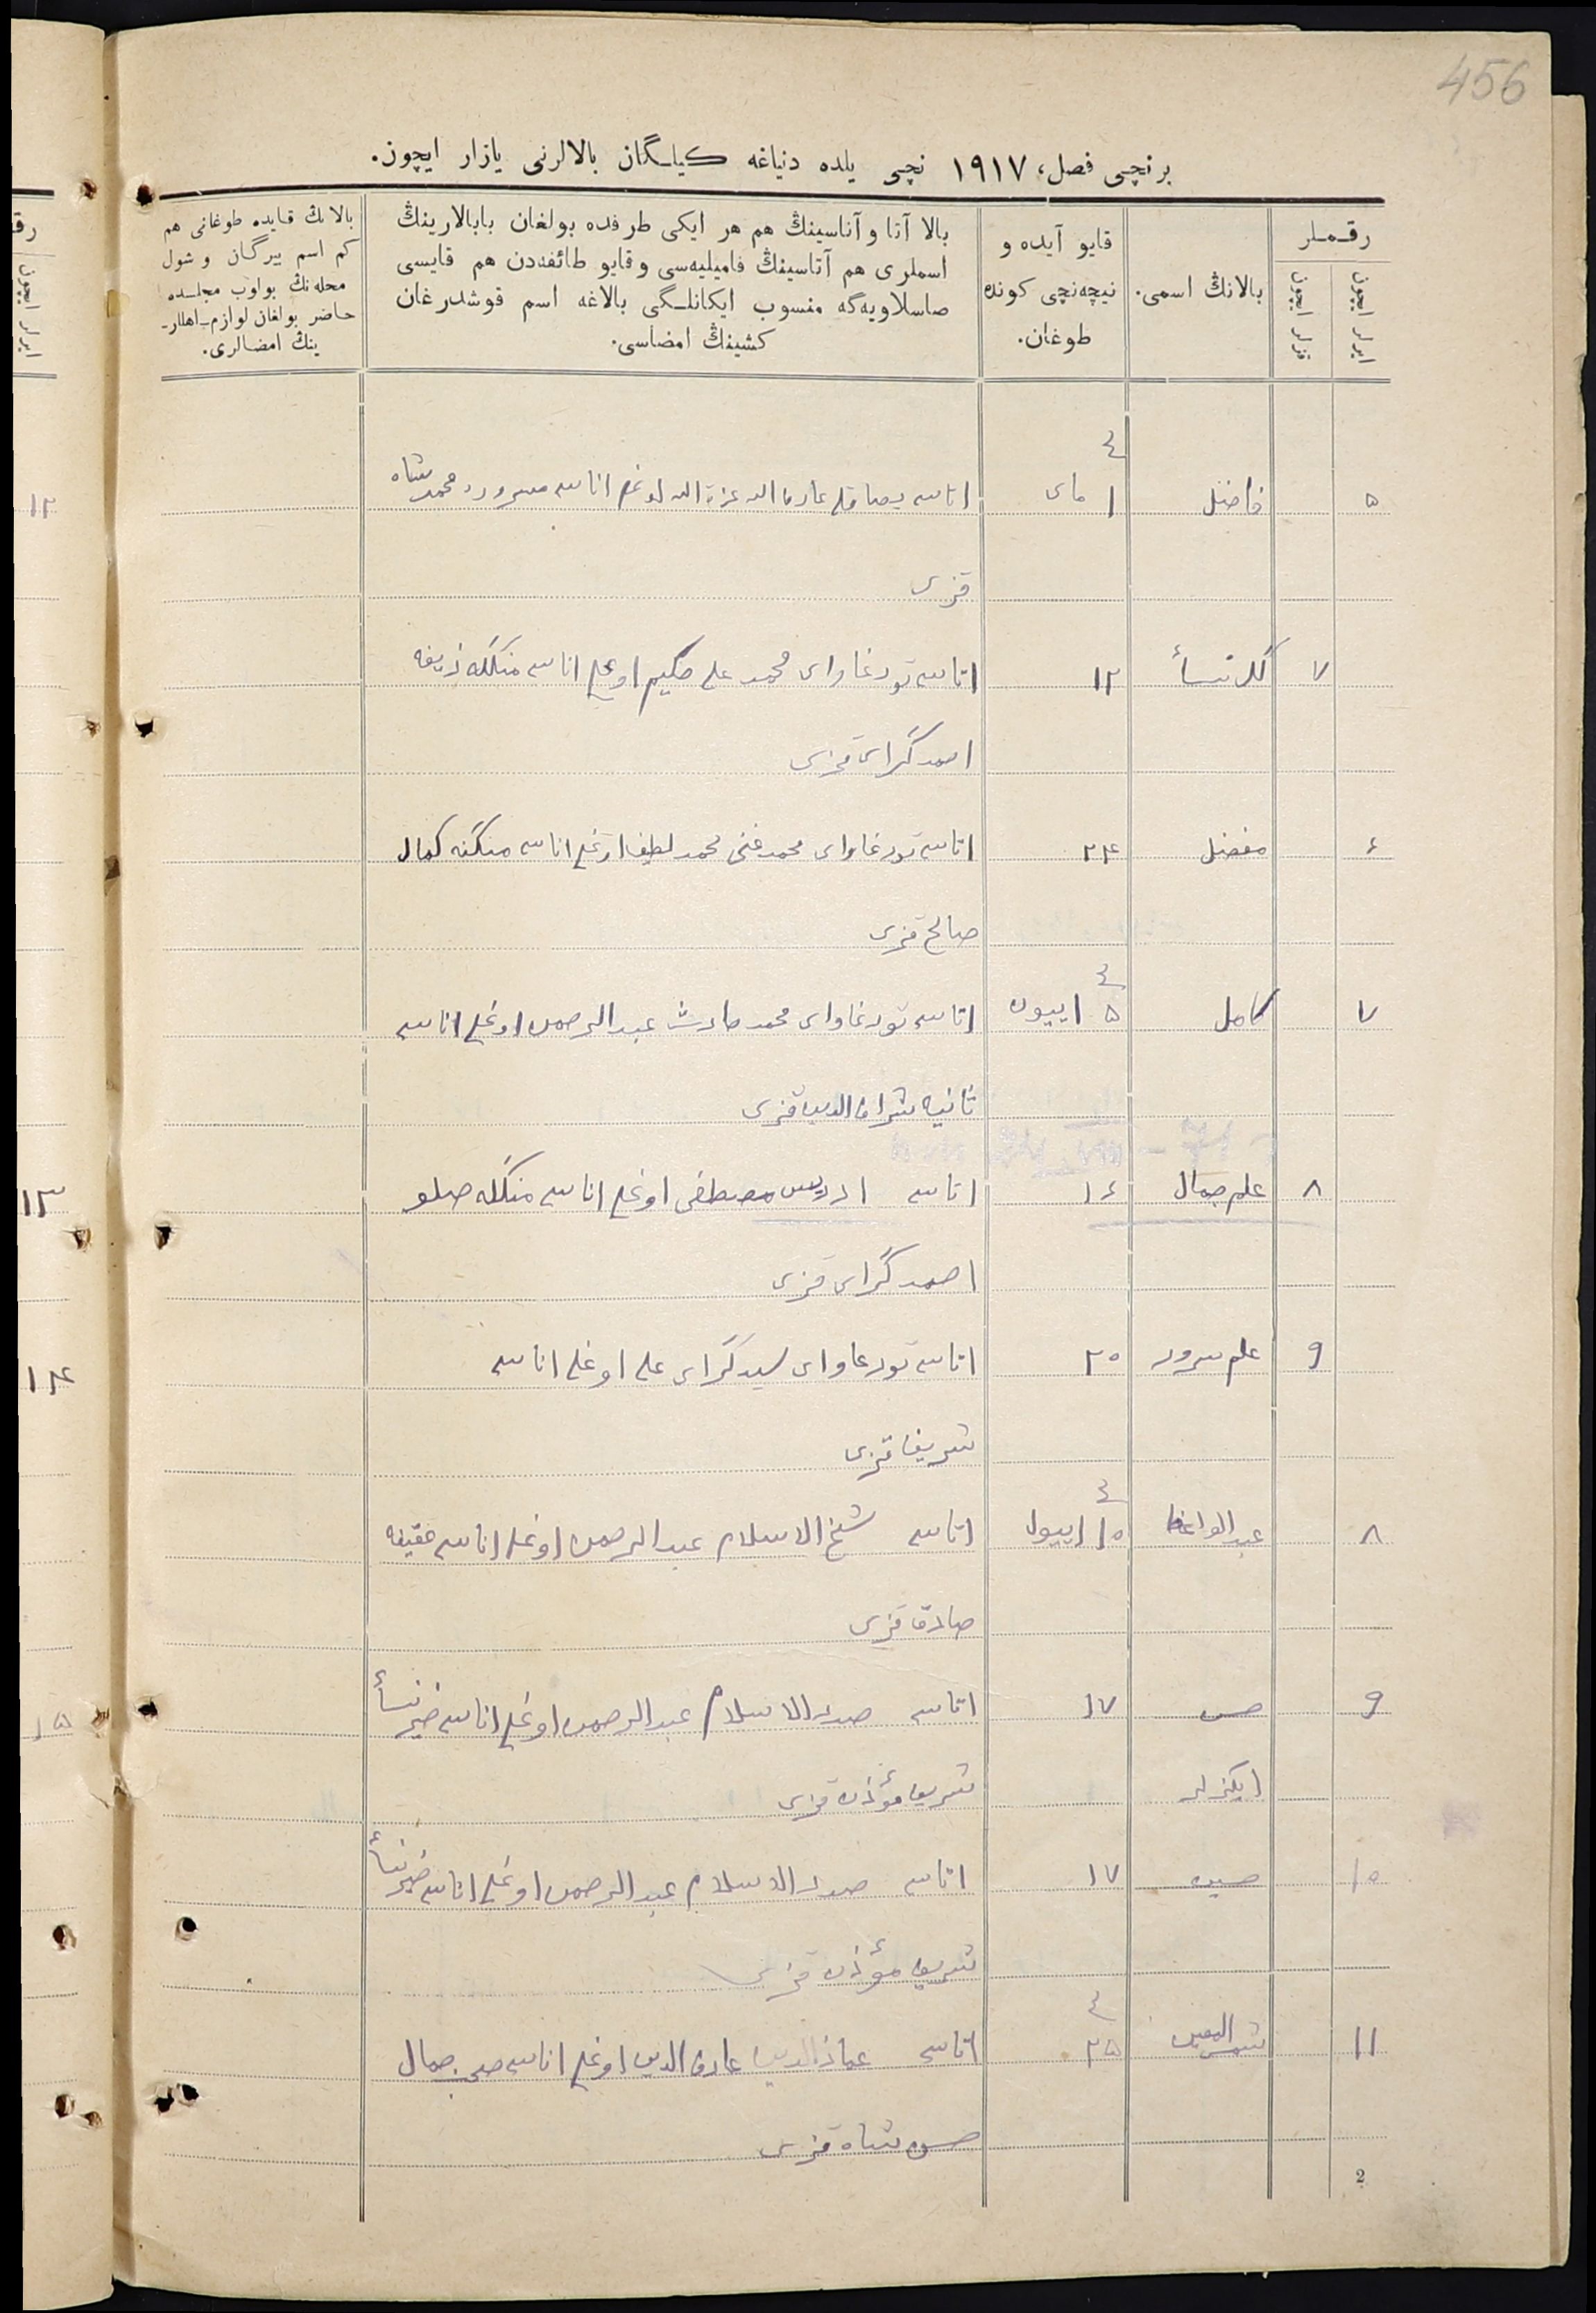 456
برنچی فصل، ١٩١٧ نچی یلده دنیاغه کیلـگان بالالرنی یازار ایچون.
رقـملر
ایرلر ایچون
قزلر ایچون
بالانڭ اسمی.
قایو آیده و
نیچه‌نچی کونده
طوغان.
بالا آتا و آناسینڭ هم هر ایکی طرفده بولغان بابالارینڭ
اسملری هم آتاسینڭ فامیلیه‌سی و قایو طائفه‌دن هم قایسی
صاسلاویه‌گه منسوب ایکانلـگی بالاغه اسم قوشدرغان
کشینڭ امضاسی.
بالانڭ قایده طوغانی هم
کم اسم بیرگان و شول
محله‌نڭ بواوب مجلسده
حاضر بولغان لوازم-اهللر-
ینڭ امضالری.
۵ فاضل ١ مای اتاسی عزة الله اوغلی اناسی سرور محمدشاه
قزی
٧ گلدنسأ ١٢ اتاسی تورغاوای محمد علی حکیم اوغلی اناسی منگله ذیفه
احمد گرای قزی
۶ مفضل ٢۴ اتاسی تورغاوای محمد غنی محمد لطیف اوغلی اناسی کمال
صالح قزی
٧ کامل ۵ اییون اتاسی تورغاوای محمد حارث عبدالرحمن اوغلی اناسی
ثانیه شراف الدین قزی
٨ علم جمال ١۶ اتاسی ادریس مصطفی اوغلی اناسی منگله صلو
احمد گرای قزی
٩ علم سرور ٢٠ اتاسی تورغاوای سید گرای علی اوغلی اناسی
شریف قزی
٨ عبد الواعظ ١٠ اییول اتاسی شیخ الاسلام عبدالرحمن اوغلی اناسی عفیفه
صادق قزی
٩ حسن ١٧ اتاسی صدر الاسلام عبدالرحمن اوغلی اناسی خیرنسأ
ایکزلر شریف مؤذن قزی
١٠ حسین ١٧ اتاسی صدر الاسلام عبدالرحمن اوغلی اناسی خیرنسأ
شریف مؤذن قزی
١١ شمس ٢۵ اتاسی عماد الدین عارف الدین اوغلی اناسی جمال
حسن شاه قزی
2
رقـ
ایرلر ایچون
١٢
١٣
١۴
١۵